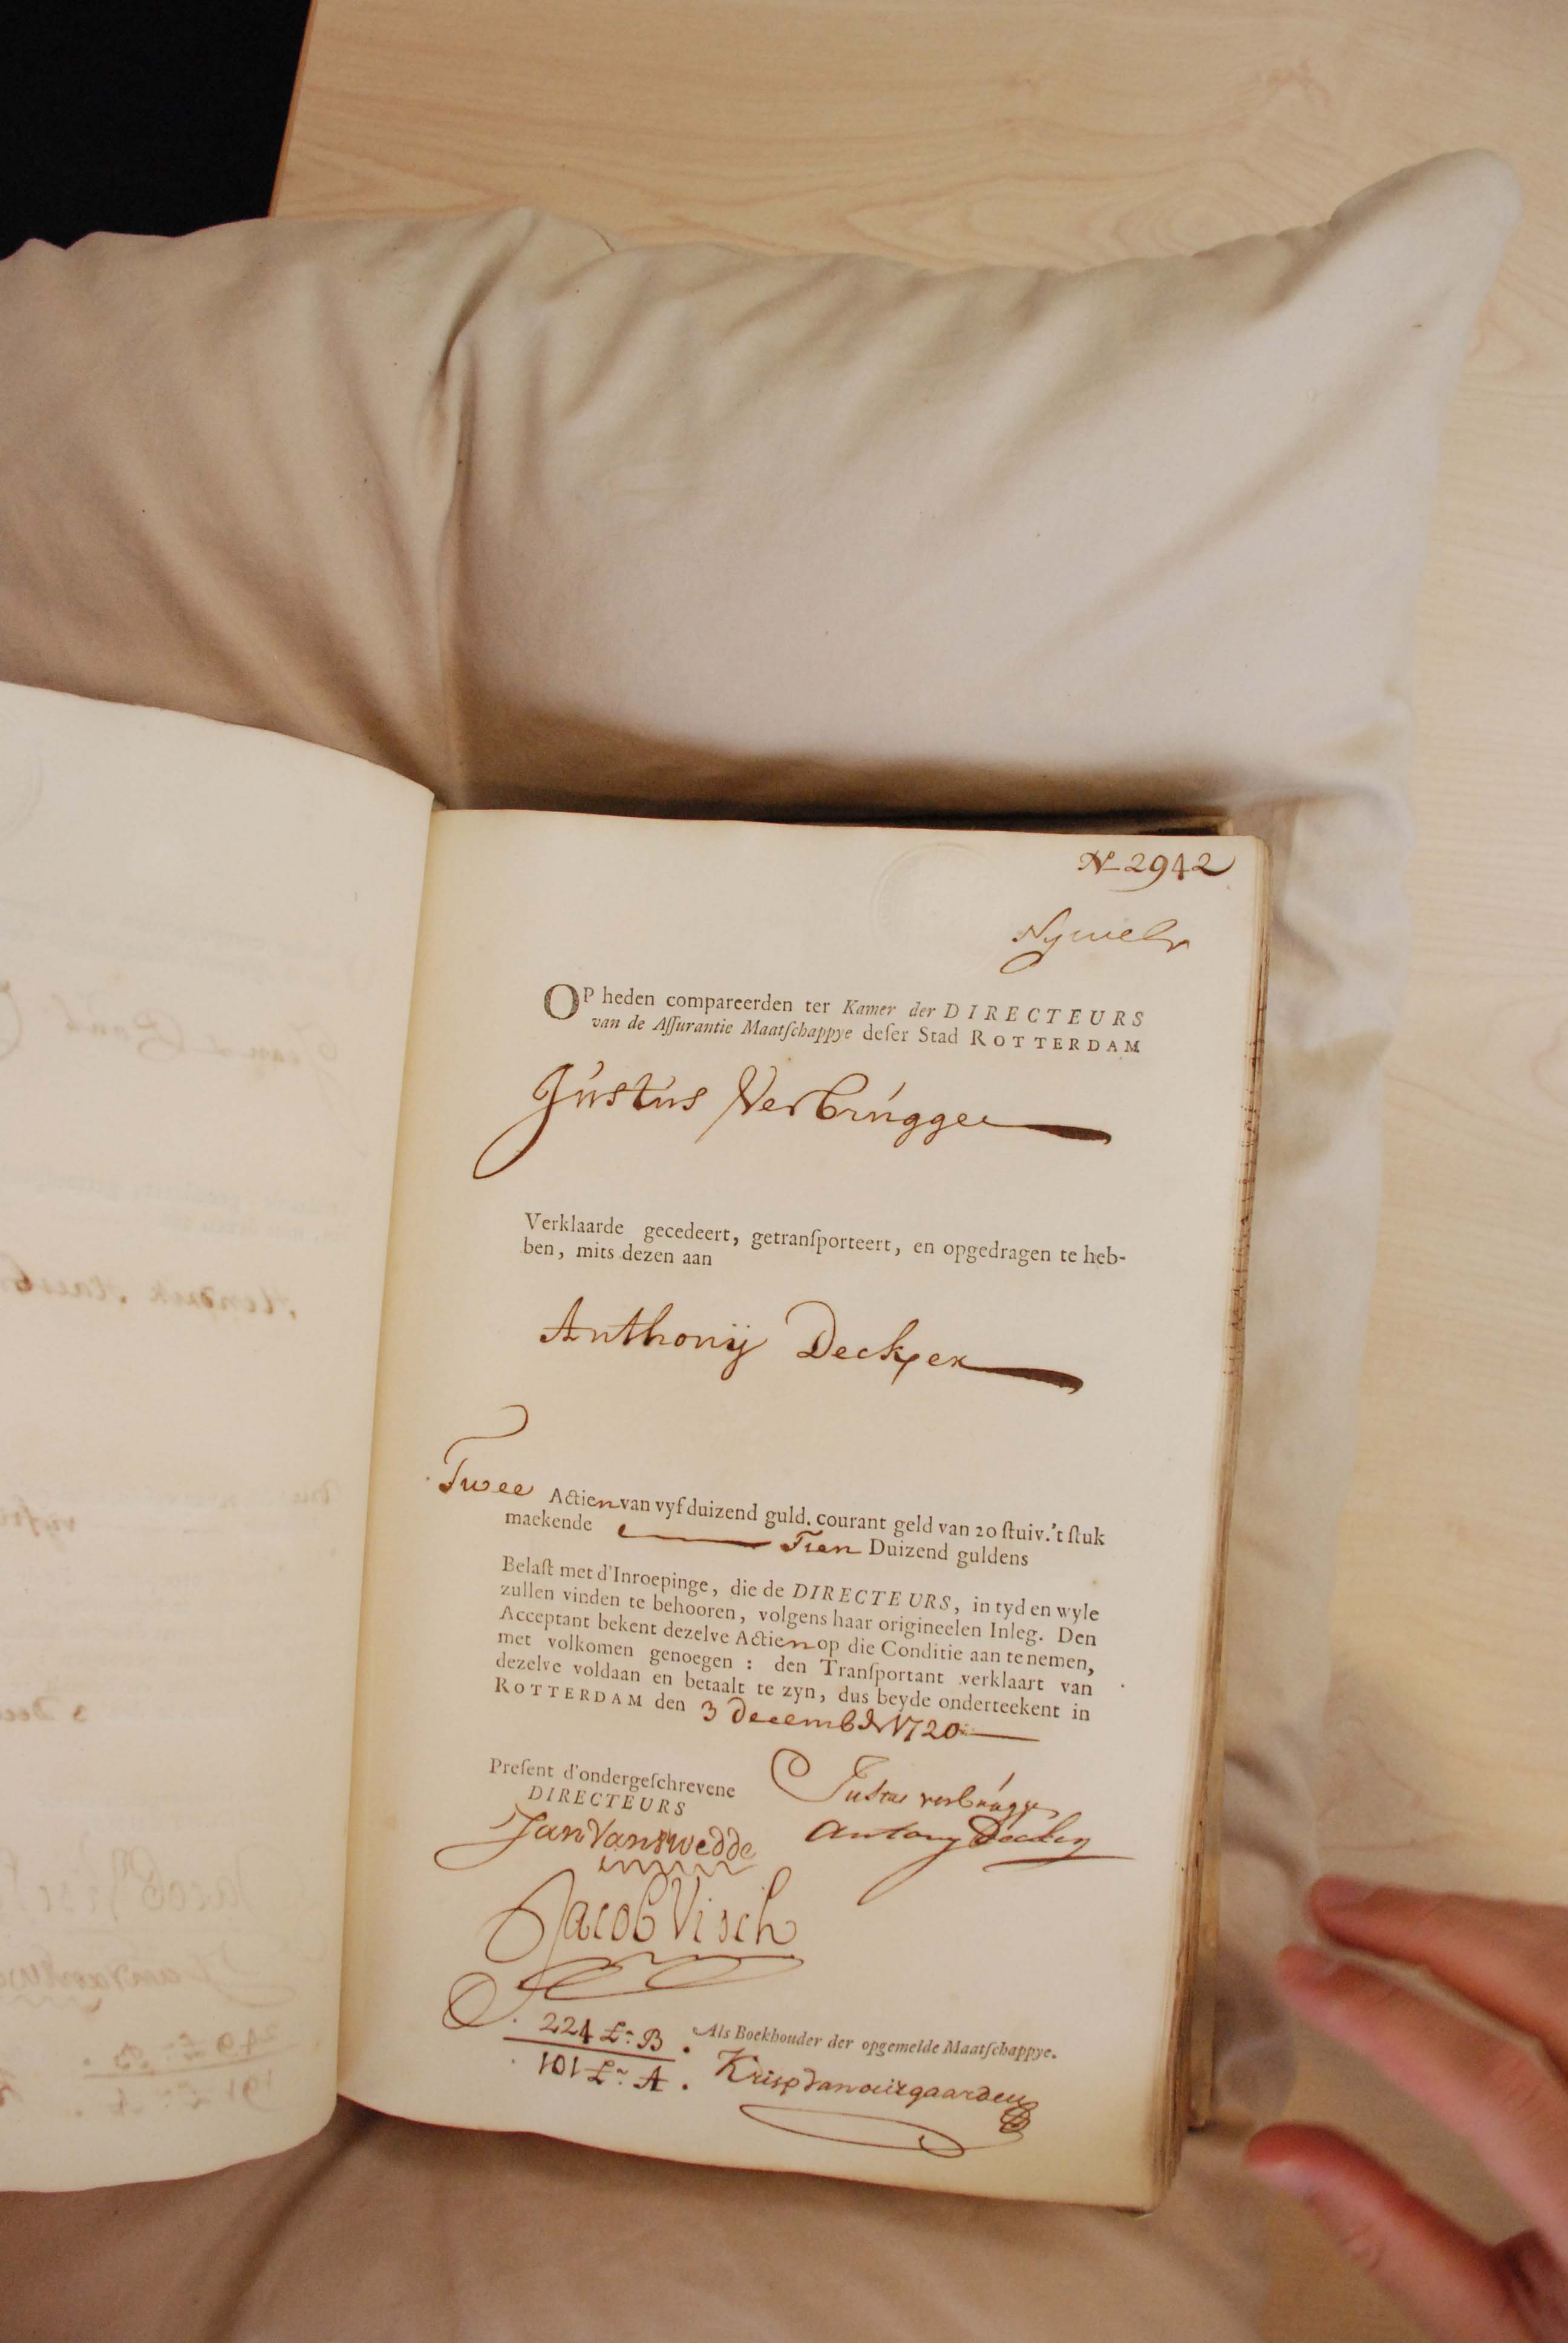 N 2942
OP heden compareerden ter Kamer der DIRECTEURS
van de Aſſurantie Maatſchappye deſer Stad ROTTERDAM
Justus Verbruggen
Verklaarde gecedeert, getranſporteert, en opgedragen te heb-
ben, mits dezen aan
Anthonÿ Decker
Twee Actien van vyf duizend guld. courant geld van 20 ſtuiv. 't ſtuk
maekende Tien Duizend guldens
Belaſt met d'Inroepinge, die de DIRECTEURS, in tyd en wyle
zullen vinden te behooren, volgens haar origineelen Inleg. Den
Acceptant bekent dezelve Actien op die Conditie aan te nemen,
met volkomen genoegen : den Tranſportant verklaart van
dezelve voldaan en betaalt te zyn, dus beyde onderteekent in
ROTTERDAM den 3 Decembr 1720
Preſent d'ondergeſchrevene
DIRECTEURS
Justus verbrugge
Jan Van Swedde
Antony Decker
Jacob Visch
224 L. B.
101 L. A.
Als Boekhouder der opgemelde Maatſchappye.